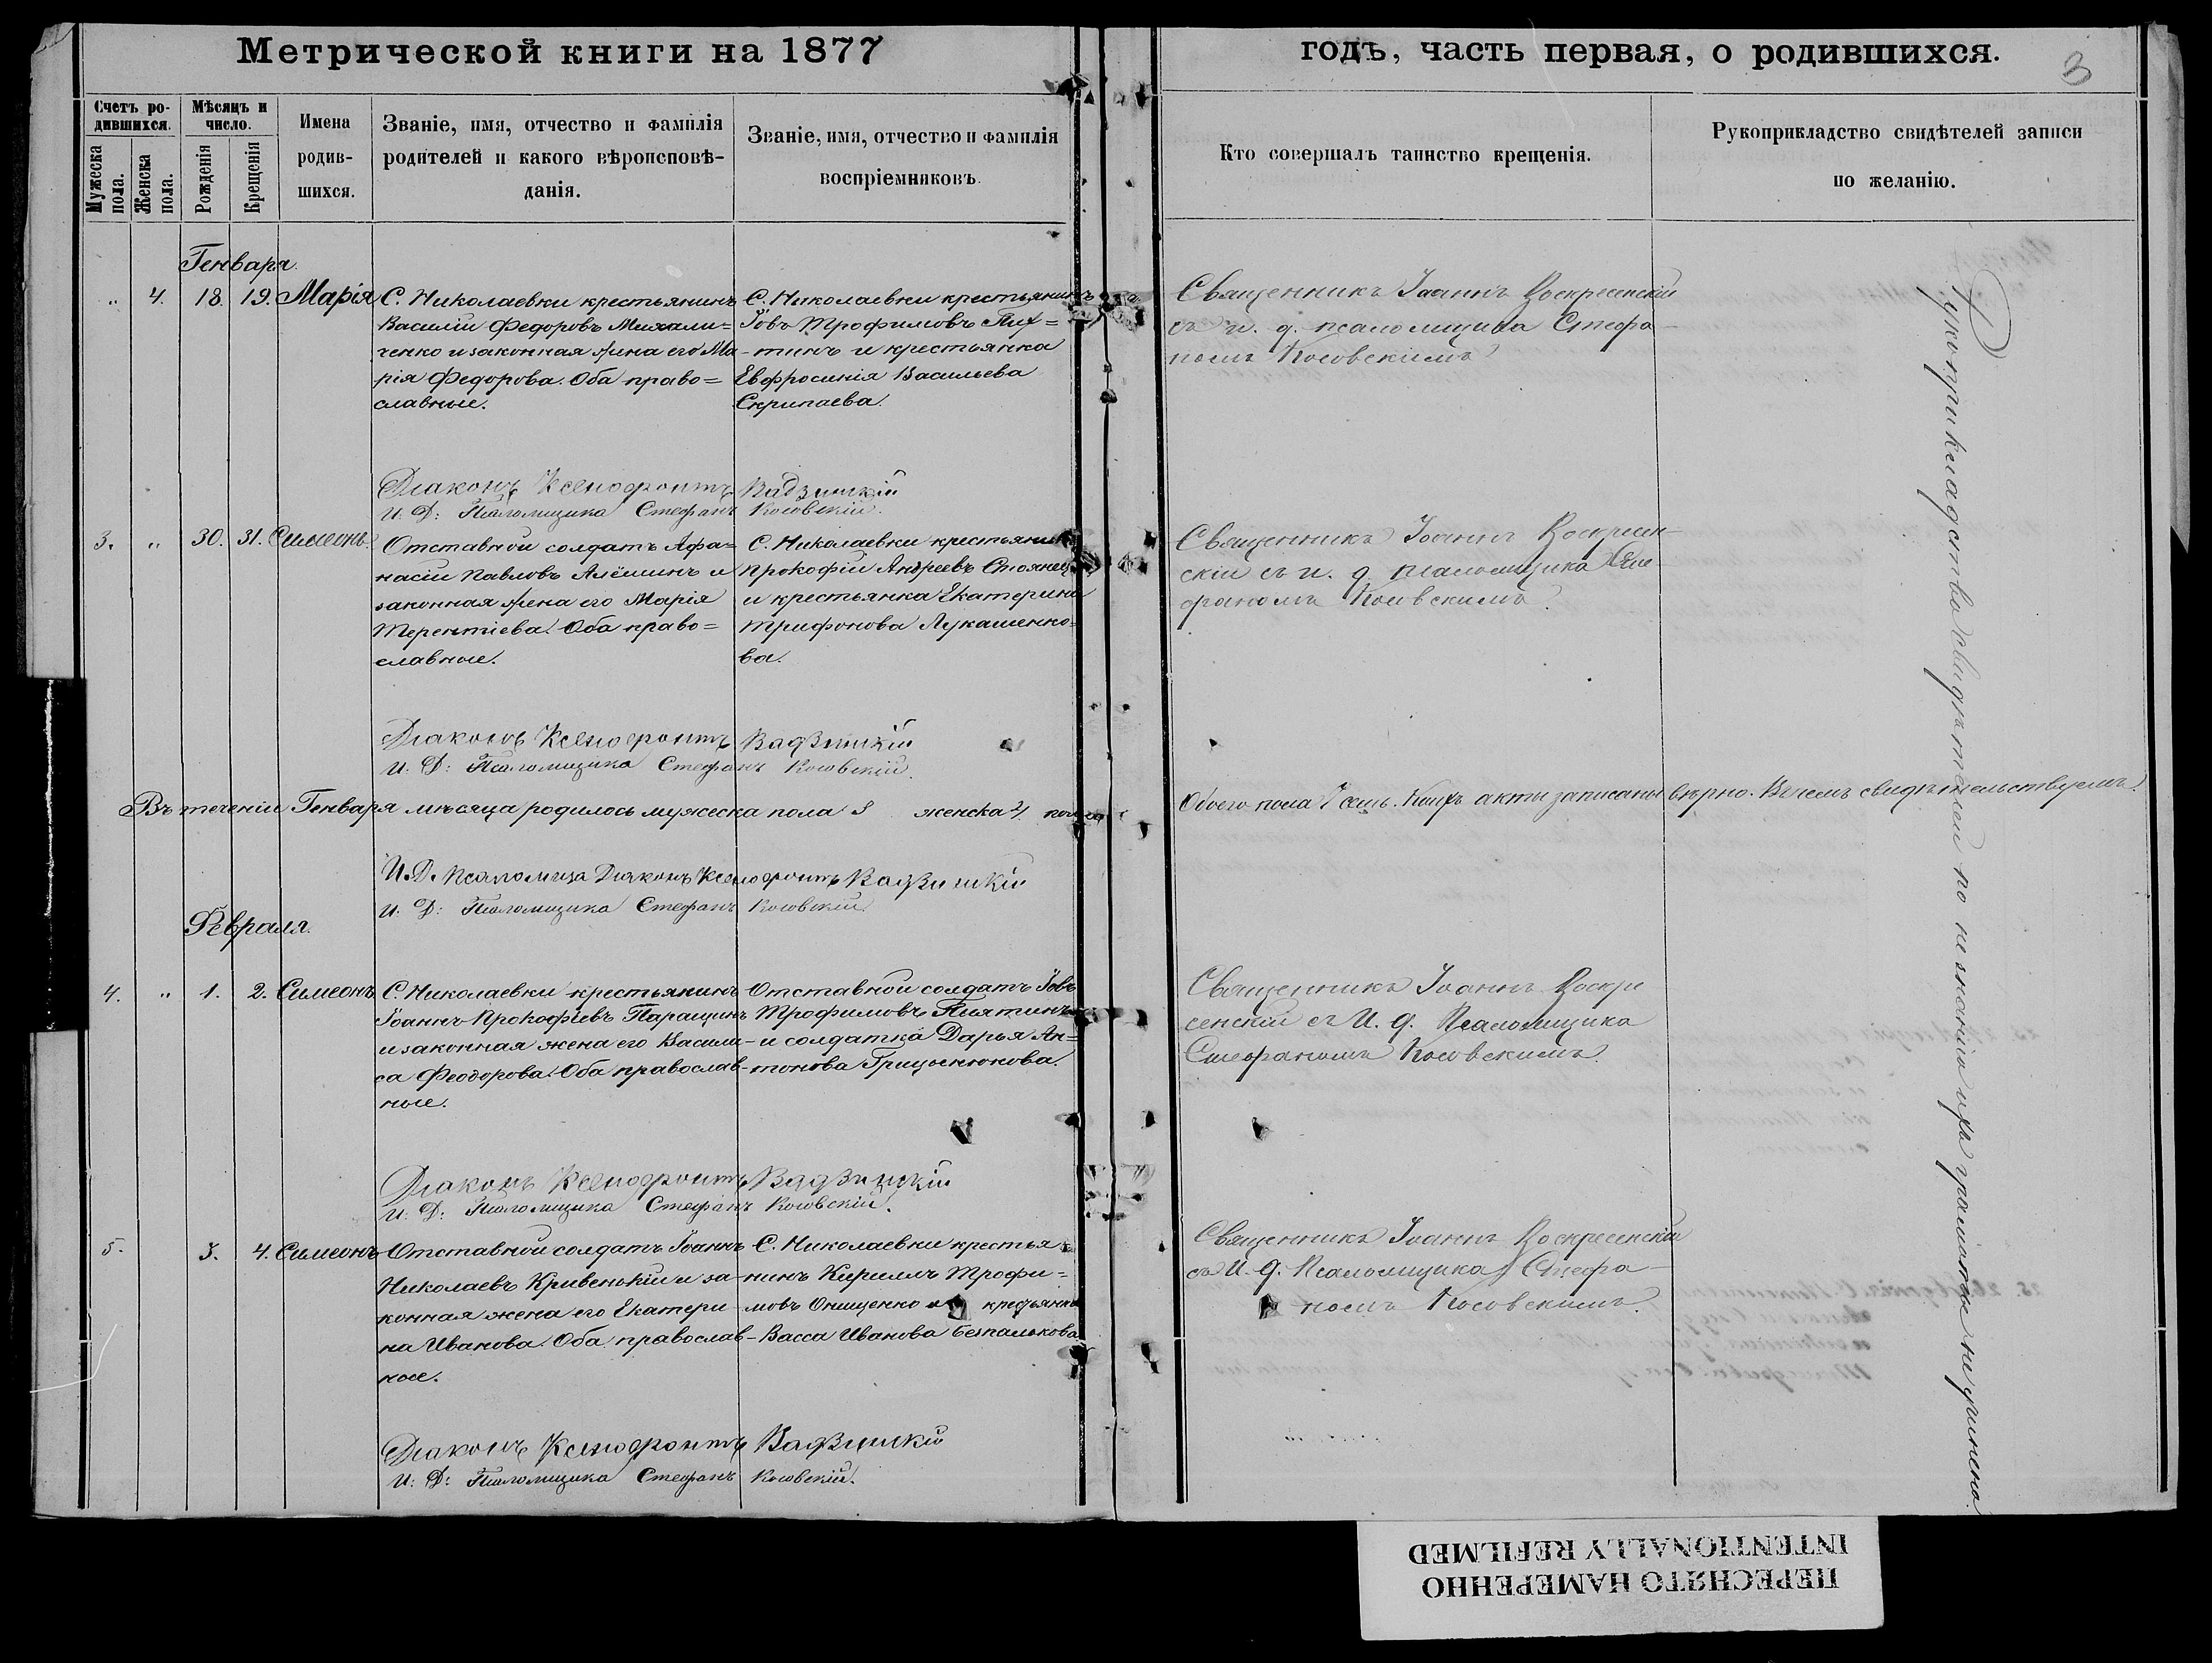 Метрической книги на 1877
годъ, часть первая, о родившихся.
3
Счетъ ро-
дившихся.
Мужеска пола.
Женска пола.
Мѣсяцъ и
число.
Рожденія
Крещенія
Имена
родив-
шихся.
Званіе, имя, отчество и фамилія
родителей и какого вѣроисповѣ-
данія.
Званіе, имя, отчество и фамилія
воспріемниковъ.
Кто совершалъ таинство крещенія.
Рукоприкладство свидѣтелей записи
по желанію.
Генваря.
" 4. 18. 19. Марія
С. Николаевки крестьянинъ
Василій Федоровъ Михали=
ченко и законная жена его Ма-
рія Федорова. Оба право=
славные.
С. Николаевки крестьянинъ
Іовъ Трофимовъ
и крестьянка
Евфросинія Васильева
Скрипаева.
Священникъ Іоаннъ Воскресенскій
съ и. д. псаломщика Стефа-
номъ Косовскимъ
Діаконъ Ксенофонтъ Вадзинскій
И. Д: Псаломщика Стефанъ Косовскій.
3. " 30. 31. Симеонъ.
Отставной солдатъ Афа=
насій Павловъ Алёшинъ и
законная жена его Марія
Терентіева. Оба право=
славные.
С. Николаевки крестьянинъ
Прокофій Андреевъ Стоянец
и крестьянка Екатерина
Трифонова Лукашенко=
ва.
Священникъ Іоаннъ Воскресен-
скій съ и. д. псаломщика Сте-
фаномъ Косовскимъ.
Діаконъ Ксенофонтъ Вадзинскій
И. Д: Псаломщика Стефанъ Косовскій.
Въ теченіи Генваря мѣсяца родилось мужеска пола 3 женска 4 пола
Обоего пола 7 душъ. Коихъ акты записаны вѣрно. Въ чемъ свидѣтельствуемъ.
И. Д. Псаломща Діаконъ Ксенофонтъ Вадзинскій
И. Д: Псаломщика Стефанъ Косовскій.
Февраля.
4. " 1. 2. Симеонъ
С. Николаевки крестьянинъ
Іоаннъ Прокофіевъ Паращинъ
и законная жена его Васили-
са Феодорова. Оба православ-
ные.
Отставной солдатъ Іовъ
Трофимовъ Пиятинъ
и солдатка Дарья Ан=
тонова Грицынюкова.
Священникъ Іоаннъ Воскре
сенскій съ И. д. Псаломщика
Стефаномъ Косовскимъ.
Діаконъ Ксенофонтъ Вадзинскій
И. Д: Псаломщика Стефанъ Косовскій.
5. 3. 4. Симеонъ
Отставной солдатъ Іоаннъ
Николаевъ Кривенькій и за-
конная жена его Екатери-
на Иванова. Оба православ-
ные.
С. Николаевки крестья=
нинъ Кириллъ Трофи=
мовъ Онищенко и крестьянка
Васса Иванова Безпалькова.
Священникъ Іоаннъ Воскресенскій
съ И. д. Псаломщика Стефа-
номъ Косовскимъ.
Діаконъ Ксенофонтъ Вадзинскій
И. Д: Псаломщика Стефанъ Косовскій.
Рукоприкладства свидѣтелей по незнанію ихъ грамоты не учинено.
ПЕРЕСНЯТО НАМЕРЕННО
INTENTIONALLY REFILMED